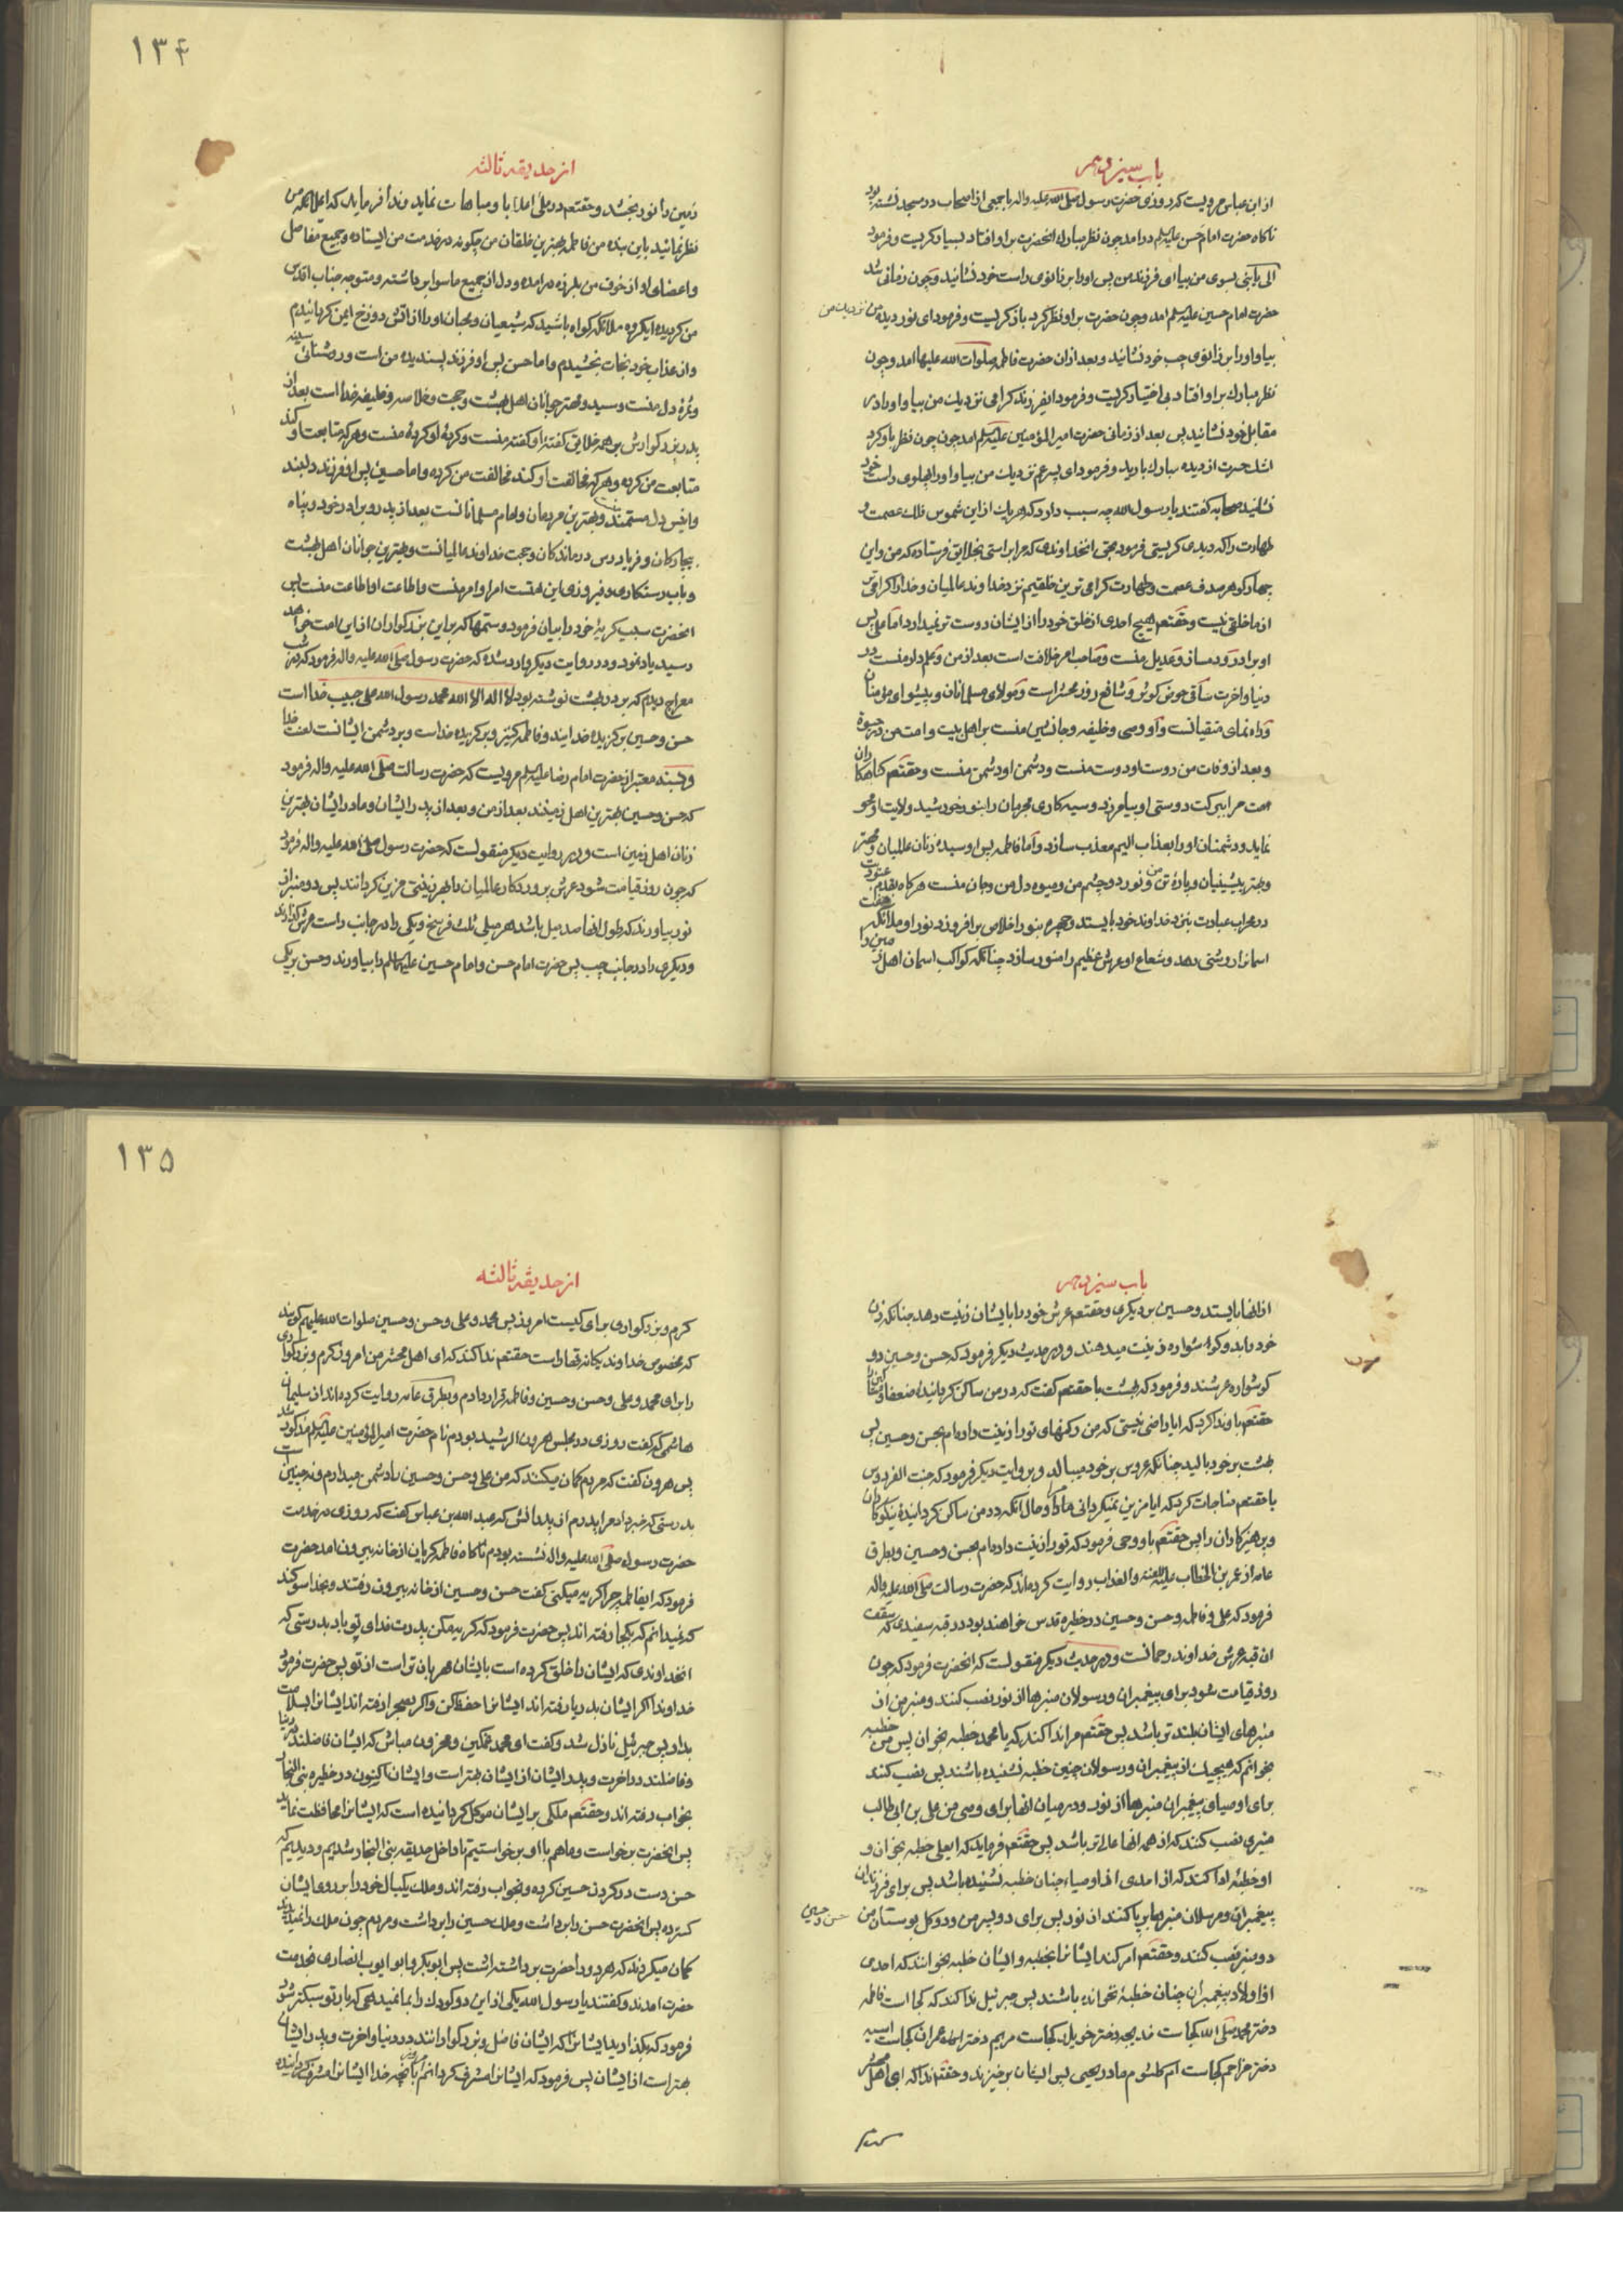 باب سیزدهم
از ابن عباس مرویست که روزی حضرت رسول صلی الله علیه واله با جمعی از اصحاب در مسجد نشسته بود
ناکاه حضرت امام حسن علیه السلم درامد چون نظر مبارک انحضرت بر او افتاد بسیار کریست و فرمود
الی یا بنی بسوی من بیا ای فرزند من پس او را بر زانوی راست خود نشانید و چون زمانی شد
حضرت امام حسین علیه السلم امد و چون حضرت بر او نظر کرد باز کریست و فرمود ای نور دیده من نزدیک من
بیا و او را بر زانوی چپ خود نشانید و بعد ازان حضرت فاطمه صلوات الله علیها امد و چون
نظر مبارک بر او افتاد بی اختیار کریست و فرمود ایفرزند کرامی نزدیک من بیا و او را در
مقابل خود نشانید پس بعد از زمانی حضرت امیر المؤمنین علیه السلم امد چون نظر باو کرد
اشک حسرت از دیده مبارک بارید و فرمود ای پسر عم نزدیک من بیا و او را بپهلوی راست خود
نشانید صحابه کفتند یا رسول الله چه سبب دارد که هر یک از این شموس فلک عصمت و
طهارت را که دیدی کریستی فرمود بحق انخداوندی که مرا براستی بخلایق فرستاده که من و این
چهار کوهر صدف عصمت و طهارت کرامی ترین خلقیم نزد خداوند عالمیان و خدا را کرامی تر
از ما خلقی نیست و حقتعم هیچ احدی از خلق خود را از ایشان دوست تر نمیدارد اما علی پس
او برادر و دمساز و عدیل منست و صاحب امر خلافت است بعد از من و علم دار منست در
دنیا و اخرت ساقی حوض کوثر و شافع روز محشر است و مولای مسلمانان و پیشوای مؤمنان
و راه نمای متقیانست و او وصی و خلیفه و جانشین منست بر اهل بیت و امت من در حیوة
و بعد از وفات من دوست او دوست منست و دشمن او دشمن منست و حقتعم کناهکاران
امت مرا ببرکت دوستی او بیامرزد و سیه کاری مجرمان را بنور خورشید ولایت او محو
نماید و دشمنان او را بعذاب الیم معذب سازد و اما فاطمه پس او سیدهٔ زنان عالمیان و بهتر
و بهتر پیشینیان و پارهٔ تن من و نور دو چشم من و میوه دل من و جان منست هر کاه بقدم عبودیت
در محراب عبادت بنزد خداوند خود بایستد و چهره بنور اخلاص برافروزد نور او ملائکه هفت
اسمانرا روشنی دهد و شعاع او عرش عظیم را منور سازد چنانکه کواکب اسمان اهل زمین را
۱۳۴
از حدیقه ثالثه
زمین را نور بخشد و حقتعم در ملأ اعلا با و مباهات نماید و ندا فرماید که ای ملائکه من
نظر نمائید باین بنده من فاطمه بهترین خلقان من چکونه در خدمت من ایستاده و جمیع مفاصل
و اعضای او از خوف من بلرزه درامده و دل از جمیع ما سوا برداشته و متوجه جناب اقدس
من کردیده ایکروه ملائکه کواه باشید که شیعیان و محبان او را از اتش دوزخ ایمن کردانیدم
و از عذاب خود نجات بخشیدم و اما حسن پس او فرزند پسندیده من است و روشنائی سینه
و ثمره دل منست و سید و بهتر جوانان اهل بهشت و حجت و خلاصه و خلیفه خدا است بعد از
پدر بزرکوارش بر همه خلایق کفته او کفته منست و کردهٔ او کردهٔ منست و هر که متابعت او کند
متابعت من کرده و هر که مخالفت او کند مخالفت من کرده و اما حسین پس او فرزند دلبند
و انیس دل مستمند و بهترین مردمان و امام مسلمانانست بعد از پدر و برادر خود و پناه
بیچارکان و فریادرس درماندکان و حجت خداوند عالمیانست و بهترین جوانان اهل بهشت
و باب رستکاری و فیروزی این امتست امر او امر منست و اطاعت او اطاعت منست پس
انحضرت سبب کریهٔ خود را بیان فرمود و ستمها که بر این بزرکواران از این امت خواهد
رسید یاد نمود و در روایت دیکر وارد شده که حضرت رسول صلی الله علیه واله فرمود که در شب
معراج دیدم که بر در بهشت نوشته بود لا اله الا الله محمد رسول الله علی حبیب خدا است
حسن و حسین برکزیده خدایند و فاطمه کنیز و برکزیده خداست و بر دشمن ایشانست لعنت خدا
و بسند معتبر از حضرت امام رضا علیه السلم مرویست که حضرت رسالت صلی الله علیه واله فرمود
که حسن و حسین بهترین اهل زمینند بعد از من و بعد از پدر ایشان و مادر ایشان بهترین
زنان اهل زمین است و در روایت دیکر منقولست که حضرت رسول صلی الله علیه واله فرمود
که چون روز قیامت شود عرش پروردکار عالمیان را بهر زینتی مزین کردانند پس دو منبر از
نور بیاورند که طول انها صد میل باشد هر میلی ثلث فرسخ و یکی را در جانب راست عرش کذارند
و دیکری را در جانب چپ پس حضرت امام حسن و امام حسین علیهما السلم را بیاورند و حسن بر یکی
باب سیزدهم
از انها بایستد و حسین بر دیکری و حقتعم عرش خود را بایشان زینت دهد چنانکه زن
خود را بدو کوشواره زینت میدهند و در حدیث دیکر فرمود که حسن و حسین دو
کوشواره عرشند و فرمود که بهشت با حقتعم کفت که در من ساکن کردانیدهٔ ضعفا و مساکین را
حقتعم باو ندا کرد که ایا راضی نیستی که من رکنهای تو را زینت داده ام بحسن و حسین پس
بهشت بر خود بالید چنانکه عروس بر خود میبالد و بروایت دیکر فرمود که جنت الفردوس
با حقتعم مناجات کرد که ایا مزین نمیکردانی مرا و حال انکه در من ساکن کردانیدهٔ نیکوکاران
و پرهیزکاران را پس حقتعم باو وحی فرمود که تو را زینت داده ام بحسن و حسین و بطرق
عامه از عمر بن الخطاب علیه اللعنه والعذاب روایت کرده اند که حضرت رسالت صلی الله علیه واله
فرمود که علی و فاطمه و حسن و حسین در حظیره قدس خواهند بود در قبه سفیدی که سقف
ان قبه عرش خداوند رحمانست و در حدیث دیکر منقولست که انحضرت فرمود که چون
روز قیامت شود برای پیغمبران و رسولان منبرها از نور نصب کنند و منبر من از
منبرهای ایشان بلندتر باشد پس حقتعم مرا ندا کند که یا محمد خطبه بخوان پس من خطبه
بخوانم که هیچیک از پیغمبران و رسولان چنین خطبه نشنیده باشند پس نصب کنند
برای اوصیای پیغمبران منبرها از نور و در میان انها برای وصی من علی بن ابی طالب
منبری نصب کنند که از همه انها عالی تر باشد پس حقتعم فرماید که ایعلی خطبه بخوان و
او خطبهٔ ادا کند که از احدی از اوصیاء چنان خطبه نشنیده باشد پس برای فرزندان
پیغمبران و مرسلان منبرها برپا کنند از نور پس برای دو پسر من و دو کل بوستان من حسن و حسین
دو منبر نصب کنند و حقتعم امر کند ایشانرا بخطبه و ایشان خطبه بخوانند که احدی
از اولاد پیغمبران چنان خطبهٔ نخوانده باشند پس جبرئیل ندا کند که کجا است فاطمه
دختر محمد صلی الله کجاست خدیجه دختر خویلد کجاست مریم دختر عمران کجاست اسیه
دختر مزاحم کجاست ام کلثوم مادر یحیی پس ایشان برخیزند و حقتعم ندا کند که ای اهل محشر
۱۳۵
از حدیقه ثالثه
کرم و بزرکواری برای کیست امروز پس محمد و علی و حسن و حسین صلوات الله علیهم کویند
که مخصوص خداوند یکانه قهار است حقتعم ندا کند که ای اهل محشر من امروز کرم و بزرکواری
را برای محمد و علی و حسن و حسین و فاطمه قرار دادم و بطرق عامه روایت کرده اند از سلیمان
هاشمی که کفت روزی در مجلس هرون الرشید بودم نام حضرت امیر المؤمنین علیه السلم مذکور شد
پس هرون کفت که مردم کمان میکنند که من علی و حسن و حسین را دشمن میدارم و نه چنین است
بدرستی که خبر داد مرا پدرم از پدرانش که عبد الله بن عباس کفت که روزی در خدمت
حضرت رسول صلی الله علیه واله نشسته بودم ناکاه فاطمه کریان از خانه بیرون امد حضرت
فرمود که ایفاطمه چرا کریه میکنی کفت حسن و حسین از خانه بیرون رفتند و بخدا سوکند
که نمیدانم که بکجا رفته اند پس حضرت فرمود که کریه مکن پدرت فدای تو باد بدرستی که
انخداوندی که ایشان را خلق کرده است بایشان مهربان تر است از تو پس حضرت فرمود
خداوندا اکر ایشان بدریا رفته اند ایشانرا حفظ کن و اکر بصحرا رفته اند ایشانرا بسلامت
بدار پس جبرئیل نازل شد و کفت ای محمد غمکین و محزون مباش که ایشان فاضلند در دنیا
و فاضلند در اخرت و پدر ایشان از ایشان بهتر است و ایشان اکنون در حظیره بنی النجار
بخواب رفته اند و حقتعم ملکی بر ایشان موکل کردانیده است که ایشانرا محافظت نماید
پس انحضرت برخواست و ما هم با او برخواستیم تا داخل حدیقه بنی النجار شدیم و دیدیم که
حسن دست در کردن حسین کرده و بخواب رفته اند و ملک یکبال خود را بر روی ایشان
کسترده پس انحضرت حسن را برداشت و ملک حسین را برداشت و مردم چون ملک را نمیدیدند
کمان میکردند که هر دو را حضرت برداشته است پس ابو بکر و ابو ایوب انصاری بخدمت
حضرت امدند و کفتند یا رسول الله یکی از این دو کودک را بما نمیدهی که بار تو سبکتر شود
فرمود که بکذارید ایشانرا که ایشان فاضل و بزرکوارانند در دنیا و اخرت و پدر ایشان
بهتر است از ایشان پس فرمود که ایشانرا مشرف کردانم امروز بانچه خدا ایشانرا مشرف کردانیده